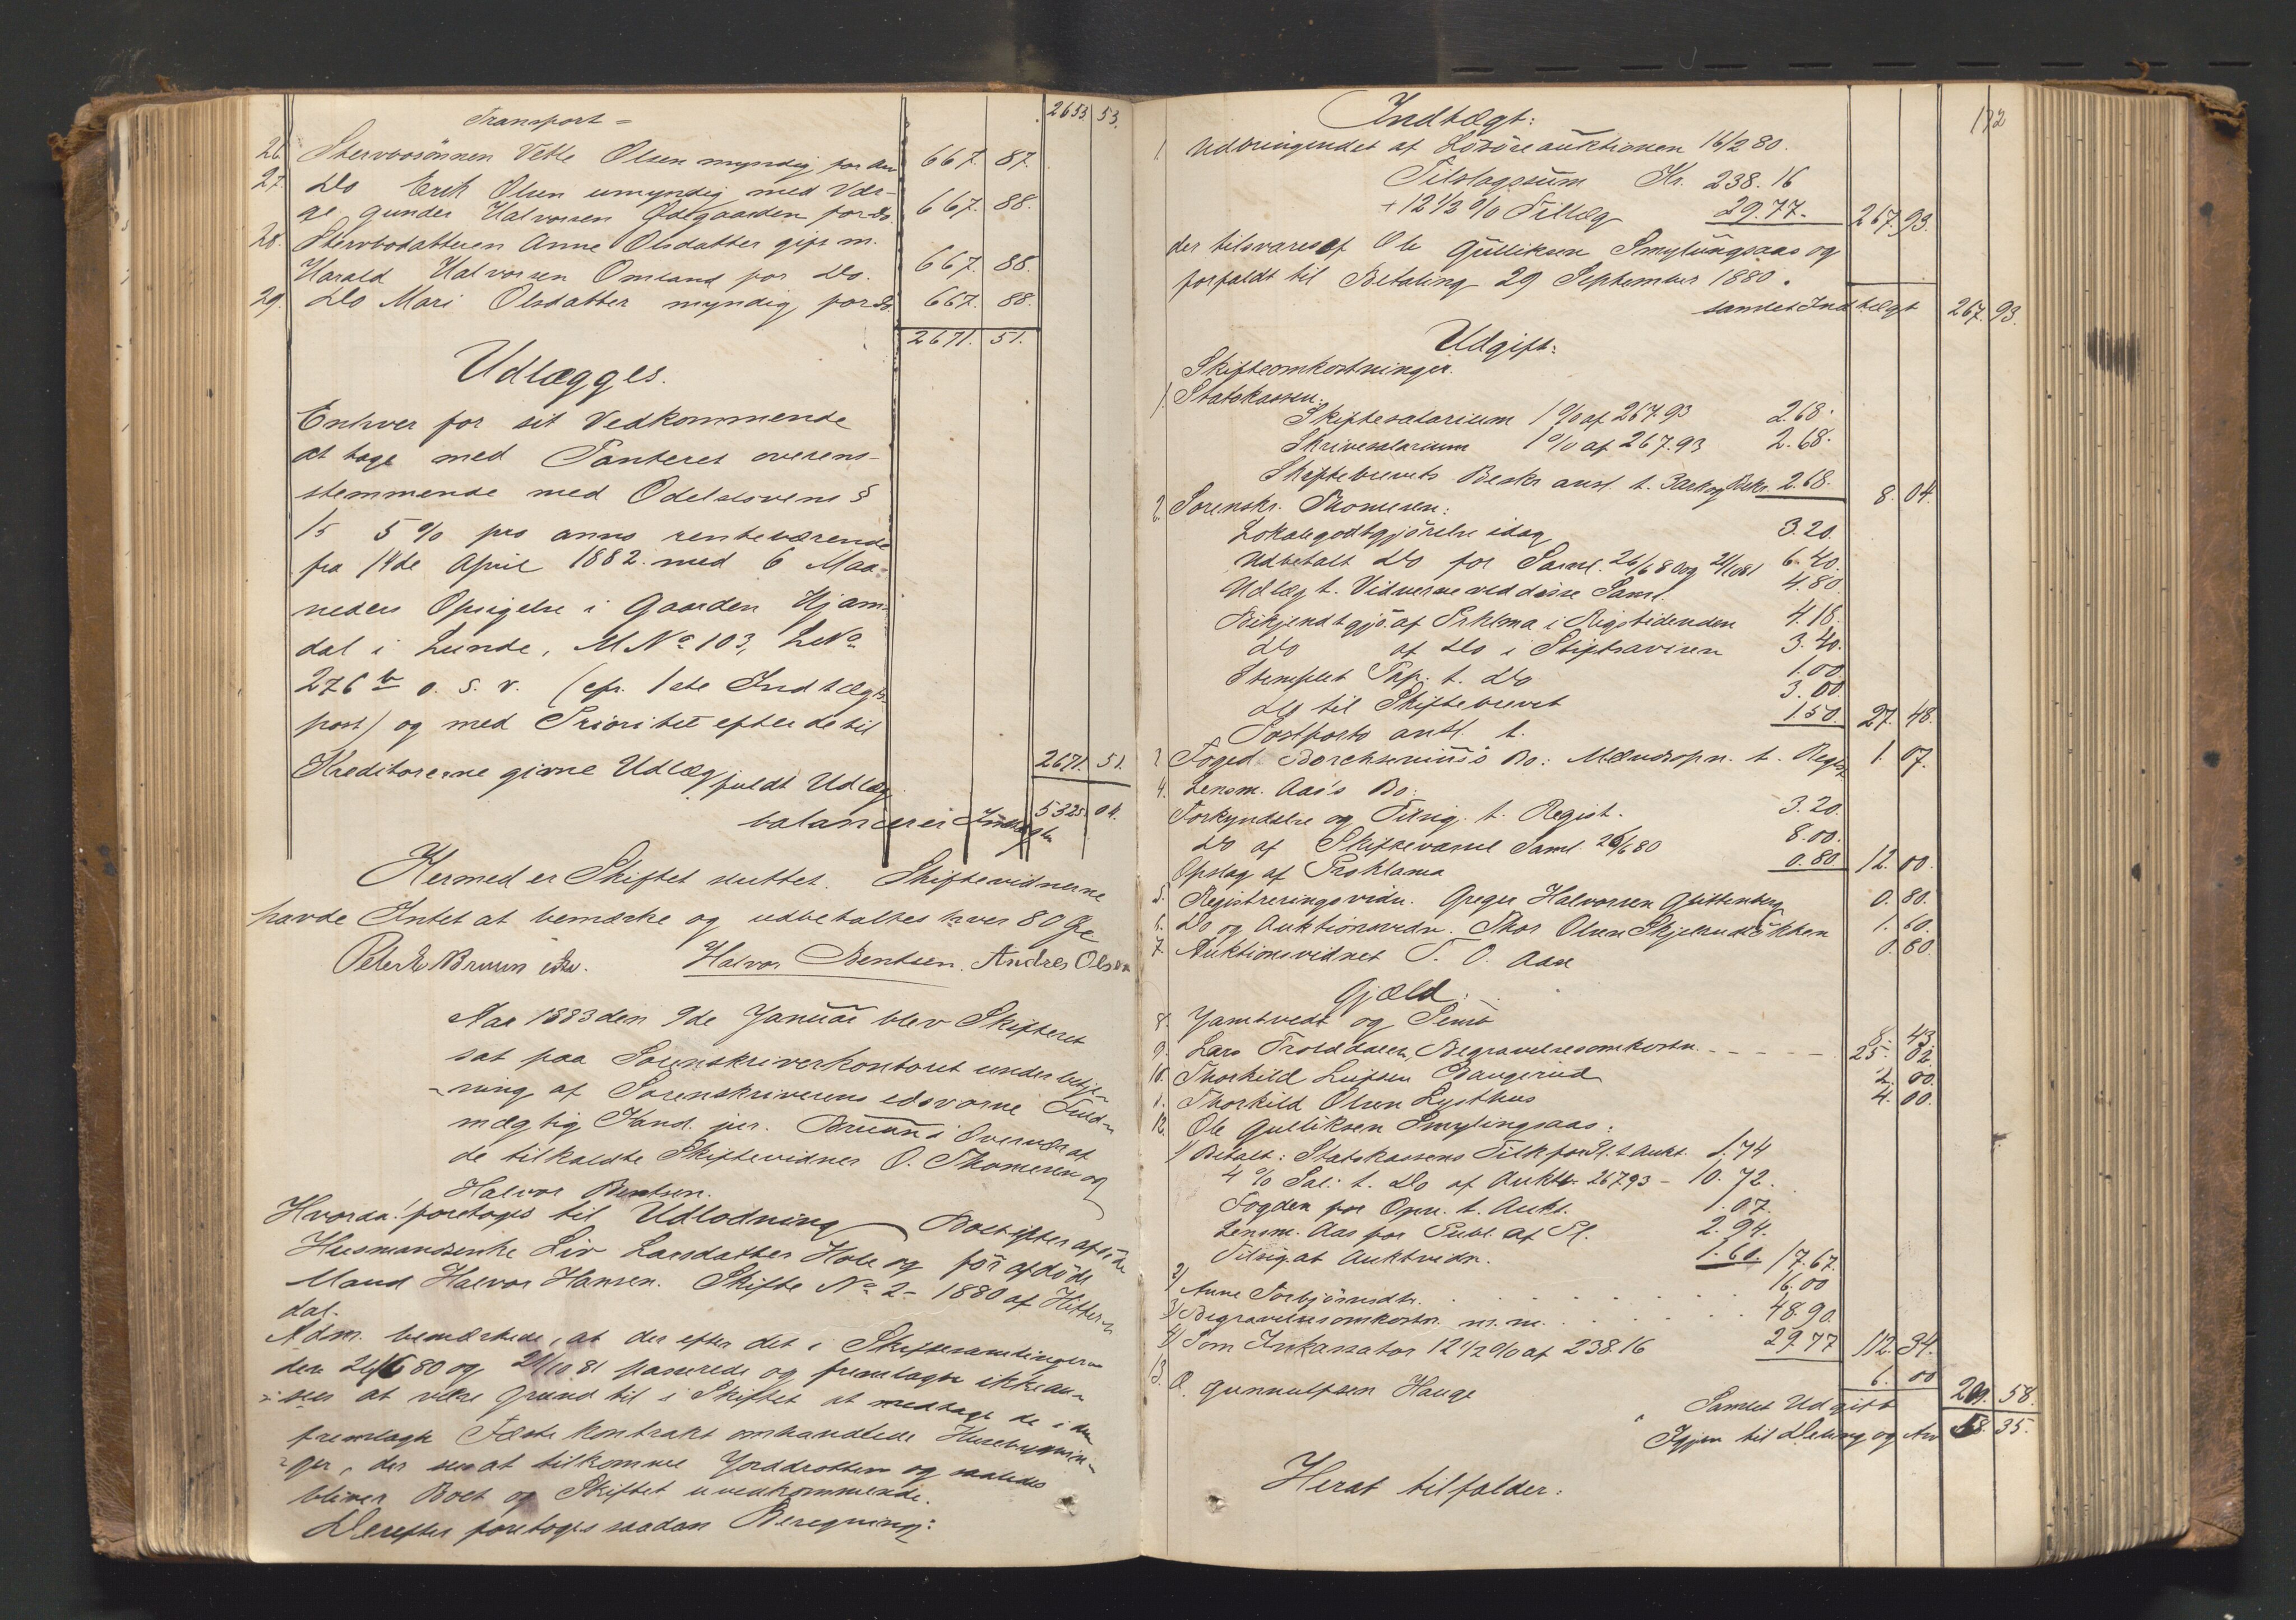 Transport = 2653. 53.
26. Stervbosönnen Vetle Olsen myndig for den 667. 87.
27. Do Erik Olsen umyndig med Vær-
ge Gunder Halvorsen Ødegaarden for do. 667. 88.
28. Stervbodatteren Anne Olsdatter gift m.
Harald Halvorsen Omland for Do. 667. 88.
29. Do Mari Olsdatter myndig for do. 667. 88.
2671. 51.
Udlægges.
Enhver for sit Vedkommende
at tage med Panteret overens-
stemmende med Odelslovens §
15 5 % pro anno rentebærende
fra 14de April 1882 med 6 Maa-
neders Opsigelse i Gaarden Hjam-
dal i Lunde, M No 103, L No
276 b o. s. v. (cfr. 1ste Indtægts-
post) og med Prioritet efter de til
Kreditorerne givne Udlæg fuldt Udlæg 2671. 51.
balancerer Indtægten 5325. 04.
Hermed er Skiftet sluttet. Skiftevidnerne
havde Intet at bemærke og udbetaltes hver 80 Øre
Bruun Halvor Bentsen. Andres Olsen
Aar 1883 den 9de Januar blev Skifteret
sat paa Sorenskriverkontoret under betje-
ning af Sorenskriverens edsvorne Fuld-
mægtig Kand. jur. Bruun i Overvær af
de tilkaldte Skiftevidner O. Thomesen og
Halvor Bentsen.
Hvorda: foretoges til Udlodning Boet efter afdöde
Husmandsenke Liv Larsdatter Hole og för afdöde
Mand Halvor Hansen. Skifte No 2 - 1880 af Hitter-
dal.
Adm. bemærkede, at der efter det i Skiftesamlingerne
den 26/6 80 og 21/10 81 passerede og fremlagte ikke an-
sees at være Grund til i Skiftet at medtage de i den
fremlagte Fæstekontrakt omhandlede Husebygnin-
ger, der sees at tilkomme Jorddrotten og saaledes
bliver Boet og Skiftet uvedkommende.
Derefter foretoges saadan Beregning:
132
Indtægt:
1. Udbringendet af Lösöreauktionen 16/2 80.
Tilslagssum Kr. 238. 16
+ 12 1/2 % Tillæg 29. 77. 267. 93.
der tilsvares af Ole Gulliksen Smylingsaas og
forfaldt til Betaling 29 September 1880.
samlet Indtægt 267. 93.
Udgift:
Skifteomkostninger.
1. Statskassen:
Skiftesalarium 1 % af 267. 93 2. 68.
Skrivesalarium 1 % af 267. 93 2. 68.
Skiftebrevets Beskr. ansl. t. 3 Ark og 2. 68. 8. 04.
2. Sorenskr. Thomesen:
Lokalegodtgjörelse idag 3. 20.
Udbetalt Do for Saml. 26/6 80 og 21/10 81 6. 40.
Udlæg t. Vidnerne ved disse Saml. 4. 80.
Bekjendtgjö. af Prklma i Rigstidenden 4. 18.
Do af do i Stiftsavisen 3. 40.
Stemplet Pap. t. Do 1. 00.
Do til Skiftebrevet 3. 00.
Postporto antl. t. 1. 50. 27. 48.
3. Foged Borchsenius's Bo: t. Regist. 1. 07.
4. Lensm. Aas's Bo:
Forkyndelse og Tilsig. t. Regist. 3. 20.
Do af Skiftevarsel Saml. 26/6 80 8. 00.
Opslag af Proklama 0. 80 12. 00.
5. Registreringsvidn. Greger Halvorsen Glittenberg 0. 80.
6. Do og Auktionsvidn. Thor Olsen 1. 60.
7. Auktionsvidnet T. O. Aase 0. 80.
Gjæld:
8. Jamtvedt og Semb 8. 43.
9. Lars Trolddalen, Begravelsesomkostn. - - - - - 25. 02.
10. Thorkild Leifsen Baugerud 2. 00.
11. Thorkild Olsen Lysthus 4. 00.
12. Ole Gulliksen Smylingsaas:
1) Betalt: Statskassens Tilk. for Pl. t. Aukt. 1. 74
4 % Sal: t. Do af Auktb. 267 93 - 10. 72.
Fogden for Opn. t. Aukt. 1. 07.
Lensm. Aas for Publ. af Pl. 2. 94.
Tilsig. at Auktvidn. 1. 60. 17. 67.
2) Anne Torbjörnsdtr. 16. 00
3) Begravelsesomkostn. m. m. 48. 90.
4) Som Inkassator 12 1/2 % af 238. 16 29 77 112. 34.
13. O. Gunnulfsen Hauge 6. 00
Samlet Udgift 209. 58.
Igjen til Deling og Arv 58. 35.
Heraf tilfalder: